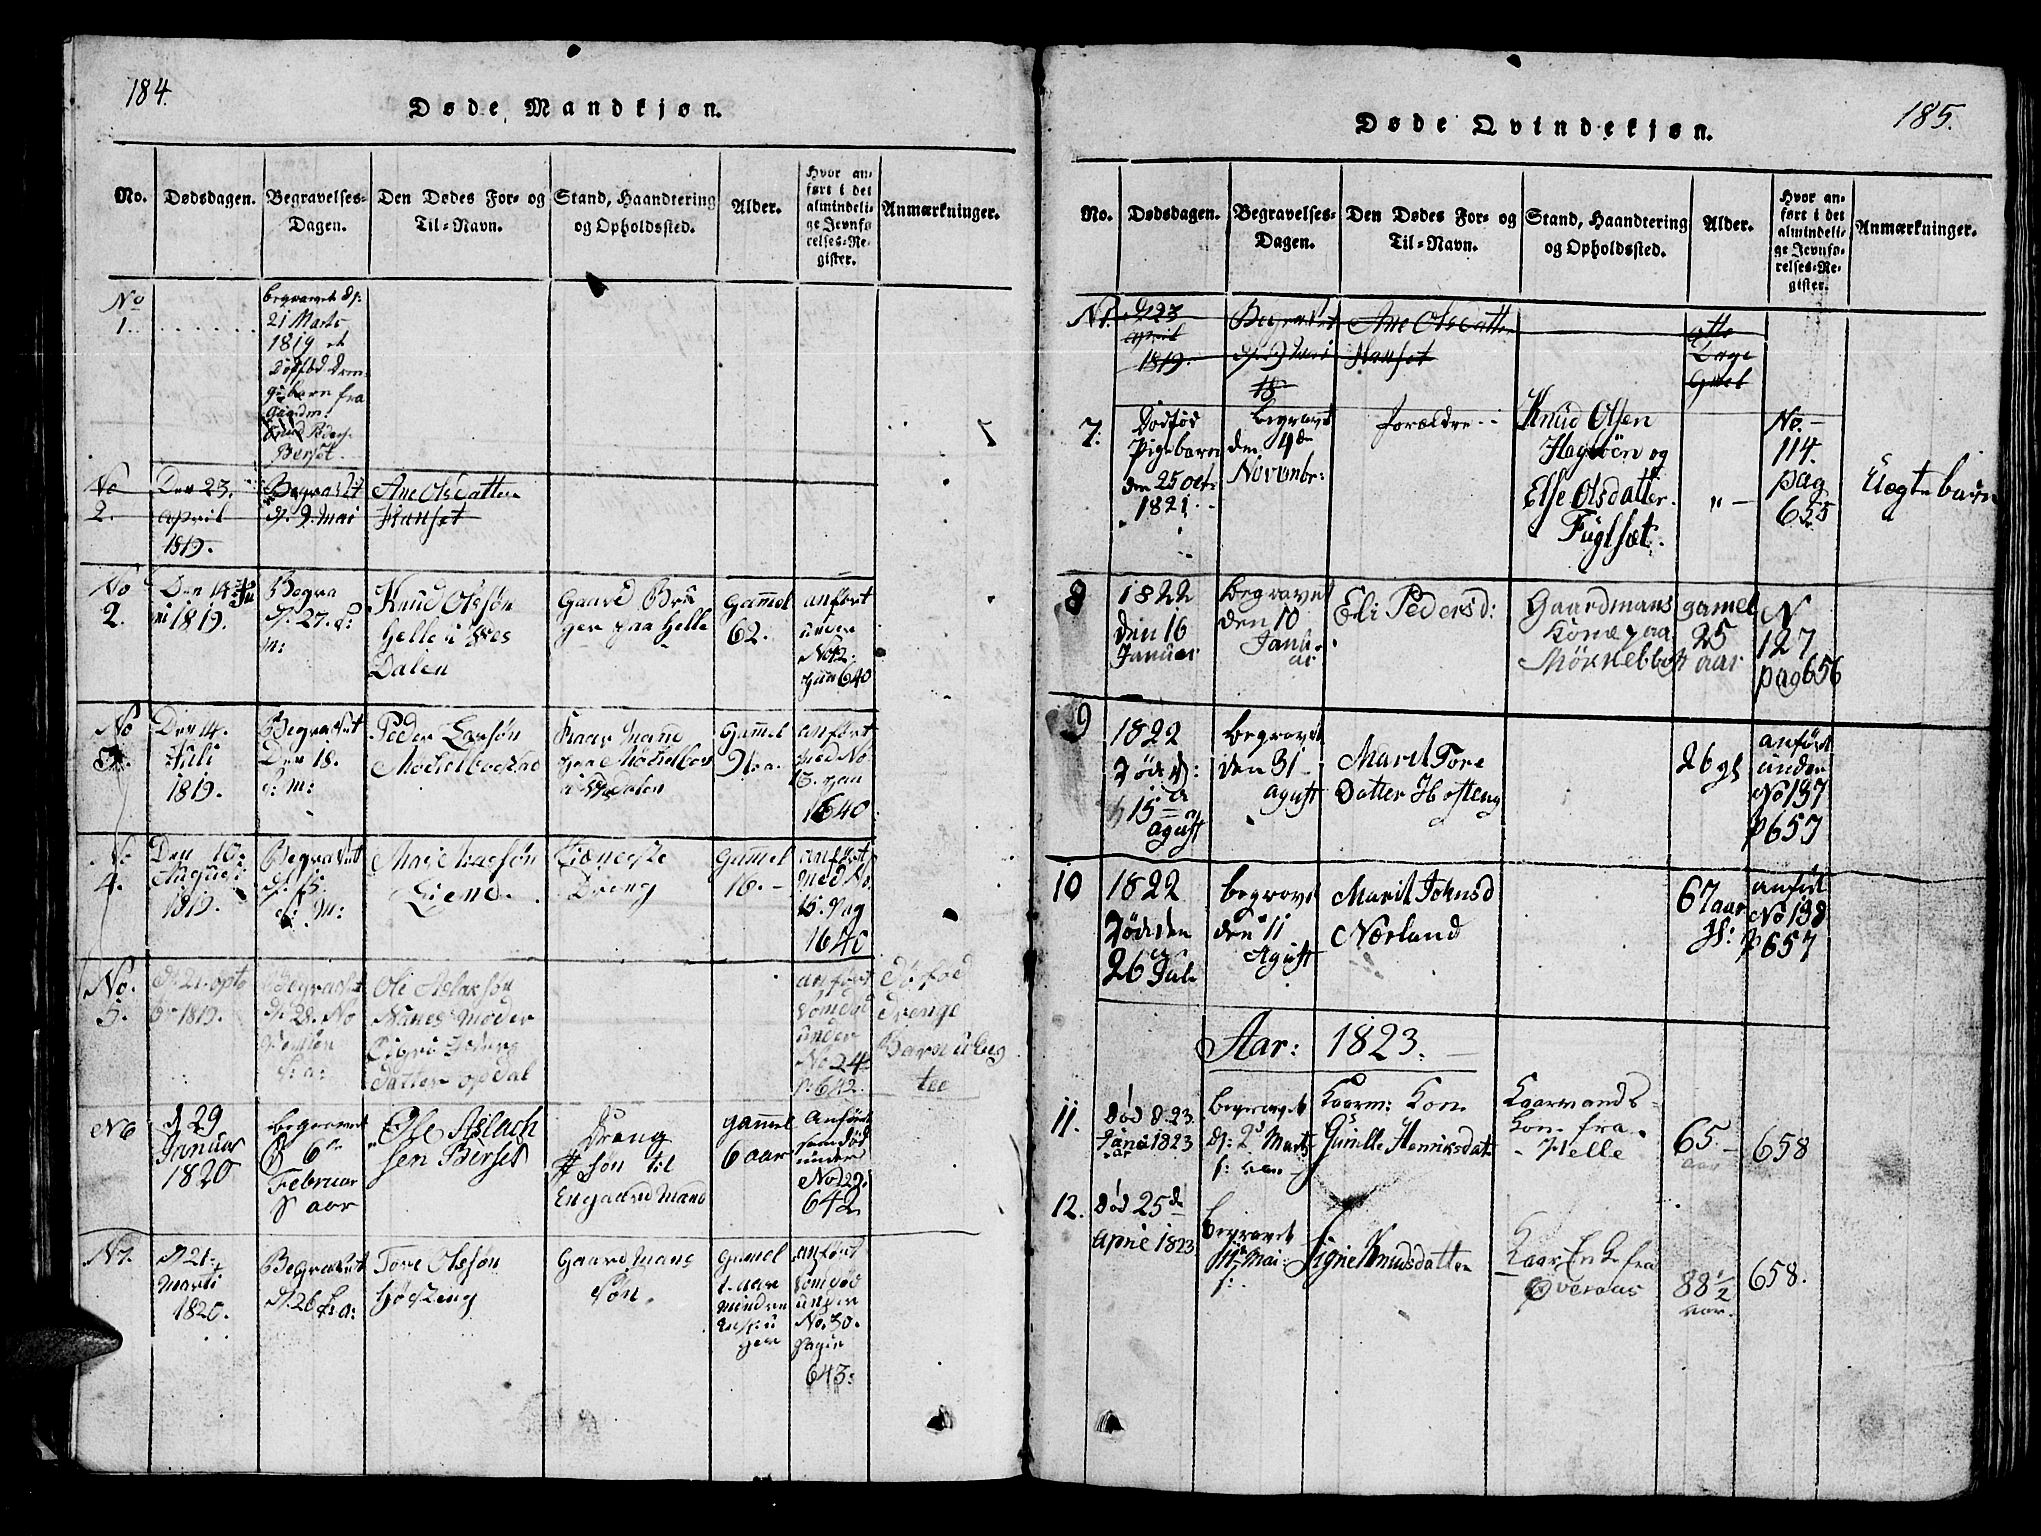 184.
Døde Mandkjøn.
No.
Dødsdagen.
Begravelses-
Dagen.
Den Dødes For- og
Til-Navn.
Stand, Haandtering
og Opholdssted.
Alder.
Hvor an-
ført i det
almindeli-
ge Jevnfø
relses-Re-
gister.
Anmærkninger.
No
1.
begravet d:
21 Marts
1819 et
Dødfød Dren-
gebarn fra
Gaardm:
Knud Peders.
Berset.
No
2.
Den 23.
April
1819.
Begravet
d. 9. Mai
Ane Olsdatter
Hauset
No
2.
Den 14
ni 1819.
Begra
d. 27. d:
m:
Knud Olssøn
Helle i
Dalen
Gaard Bru
ger paa Helle
Gammel
62.
anført
under
No 12.
pag 640
No
3.
Den 14.
Juli
1819.
Begravet
Den 18.
d: m:
Peder Larsøn
Kaar Mand
Gammel
anført
med No
13. pag
1640
No
4.
Den 10.
August
1819.
Begravet
d. 15.
d: M:
Liene
Dreng
Gammel
16.
anført
med No.
15. Pag
1640
No.
5.
1819.
Begravet
d. 28. No
Ole Aslaksøn
Moder
datter opdal
anført
som død
under
No 24
p. 642.
Døfød
Drenge
Barn
No 6
d 29
Januar
1820
begravet
d 6te
Februar
S aar
Ole Aslach
sen Berset
Dreng
Søn til
En gaard Mand
gammel
6 aar
Anført
som død
under
No 29.
642
N 7.
d. 21.
Marti
1820.
Begravet
d. 26
Tore Olssøn
Gaard Mans
Søn.
Gamel
1. aar
mindre
anført
som død
under
No. 30.
Pagin
643:
185.
Døde Qvindekjøn.
No.
Dødsdagen.
Begravelses-
Dagen.
Den Dødes For- og
Til-Navn.
Stand, Haandtering
og Opholdssted.
Alder.
Hvor an-
ført i det
almindeli-
ge Jevnfø-
relses-Re-
gister.
Anmærkninger.
N 1.
d 23
april
1819.
Begravet
d. 9 Mai
18
Ane Olsdatter
Hauset
otte
Dage
Gmel
7.
Dødfød
Pigebarn
den 25 oct:
1821.
begravet
den 4de
Novembr:
forældre
Knud Olsen
Hagbøen og
Else Olsdatter.
Fuglset.
" —
No. —
114.
pag
655
Uægte barn
8
1822
den 16
Januar
begravet
den 10
Janu-
ar
Eli Pedersd:
Gaardmans
Kone paa
gamel
25
aar
N
127
pag 656
9
1822
Død d:
15 de
agust
begravet
den 31
agust
Marit Tore
Datter Hosteng
26 gl
anført
under
No 137
p 657
10
1822
Død den
26 Juli
begravet
den 11
Agust
Marit Johnsd
Nærland
67 aar
gl:
anført
No 138
p 657
Aar: 1823.
11.
død d. 23.
Janu 1823
ar
begravet
d: 2 Marts
Kaarm: Kon.
Gunille Henriksdat
Kaarmands
Kone fra
Helle
65.
aar
658
12.
død 25de
april 1823
begravet
Mai
Signe Knudsdatter
Kaar Enke fra
Øveraas
88 1/2
aar.
658.